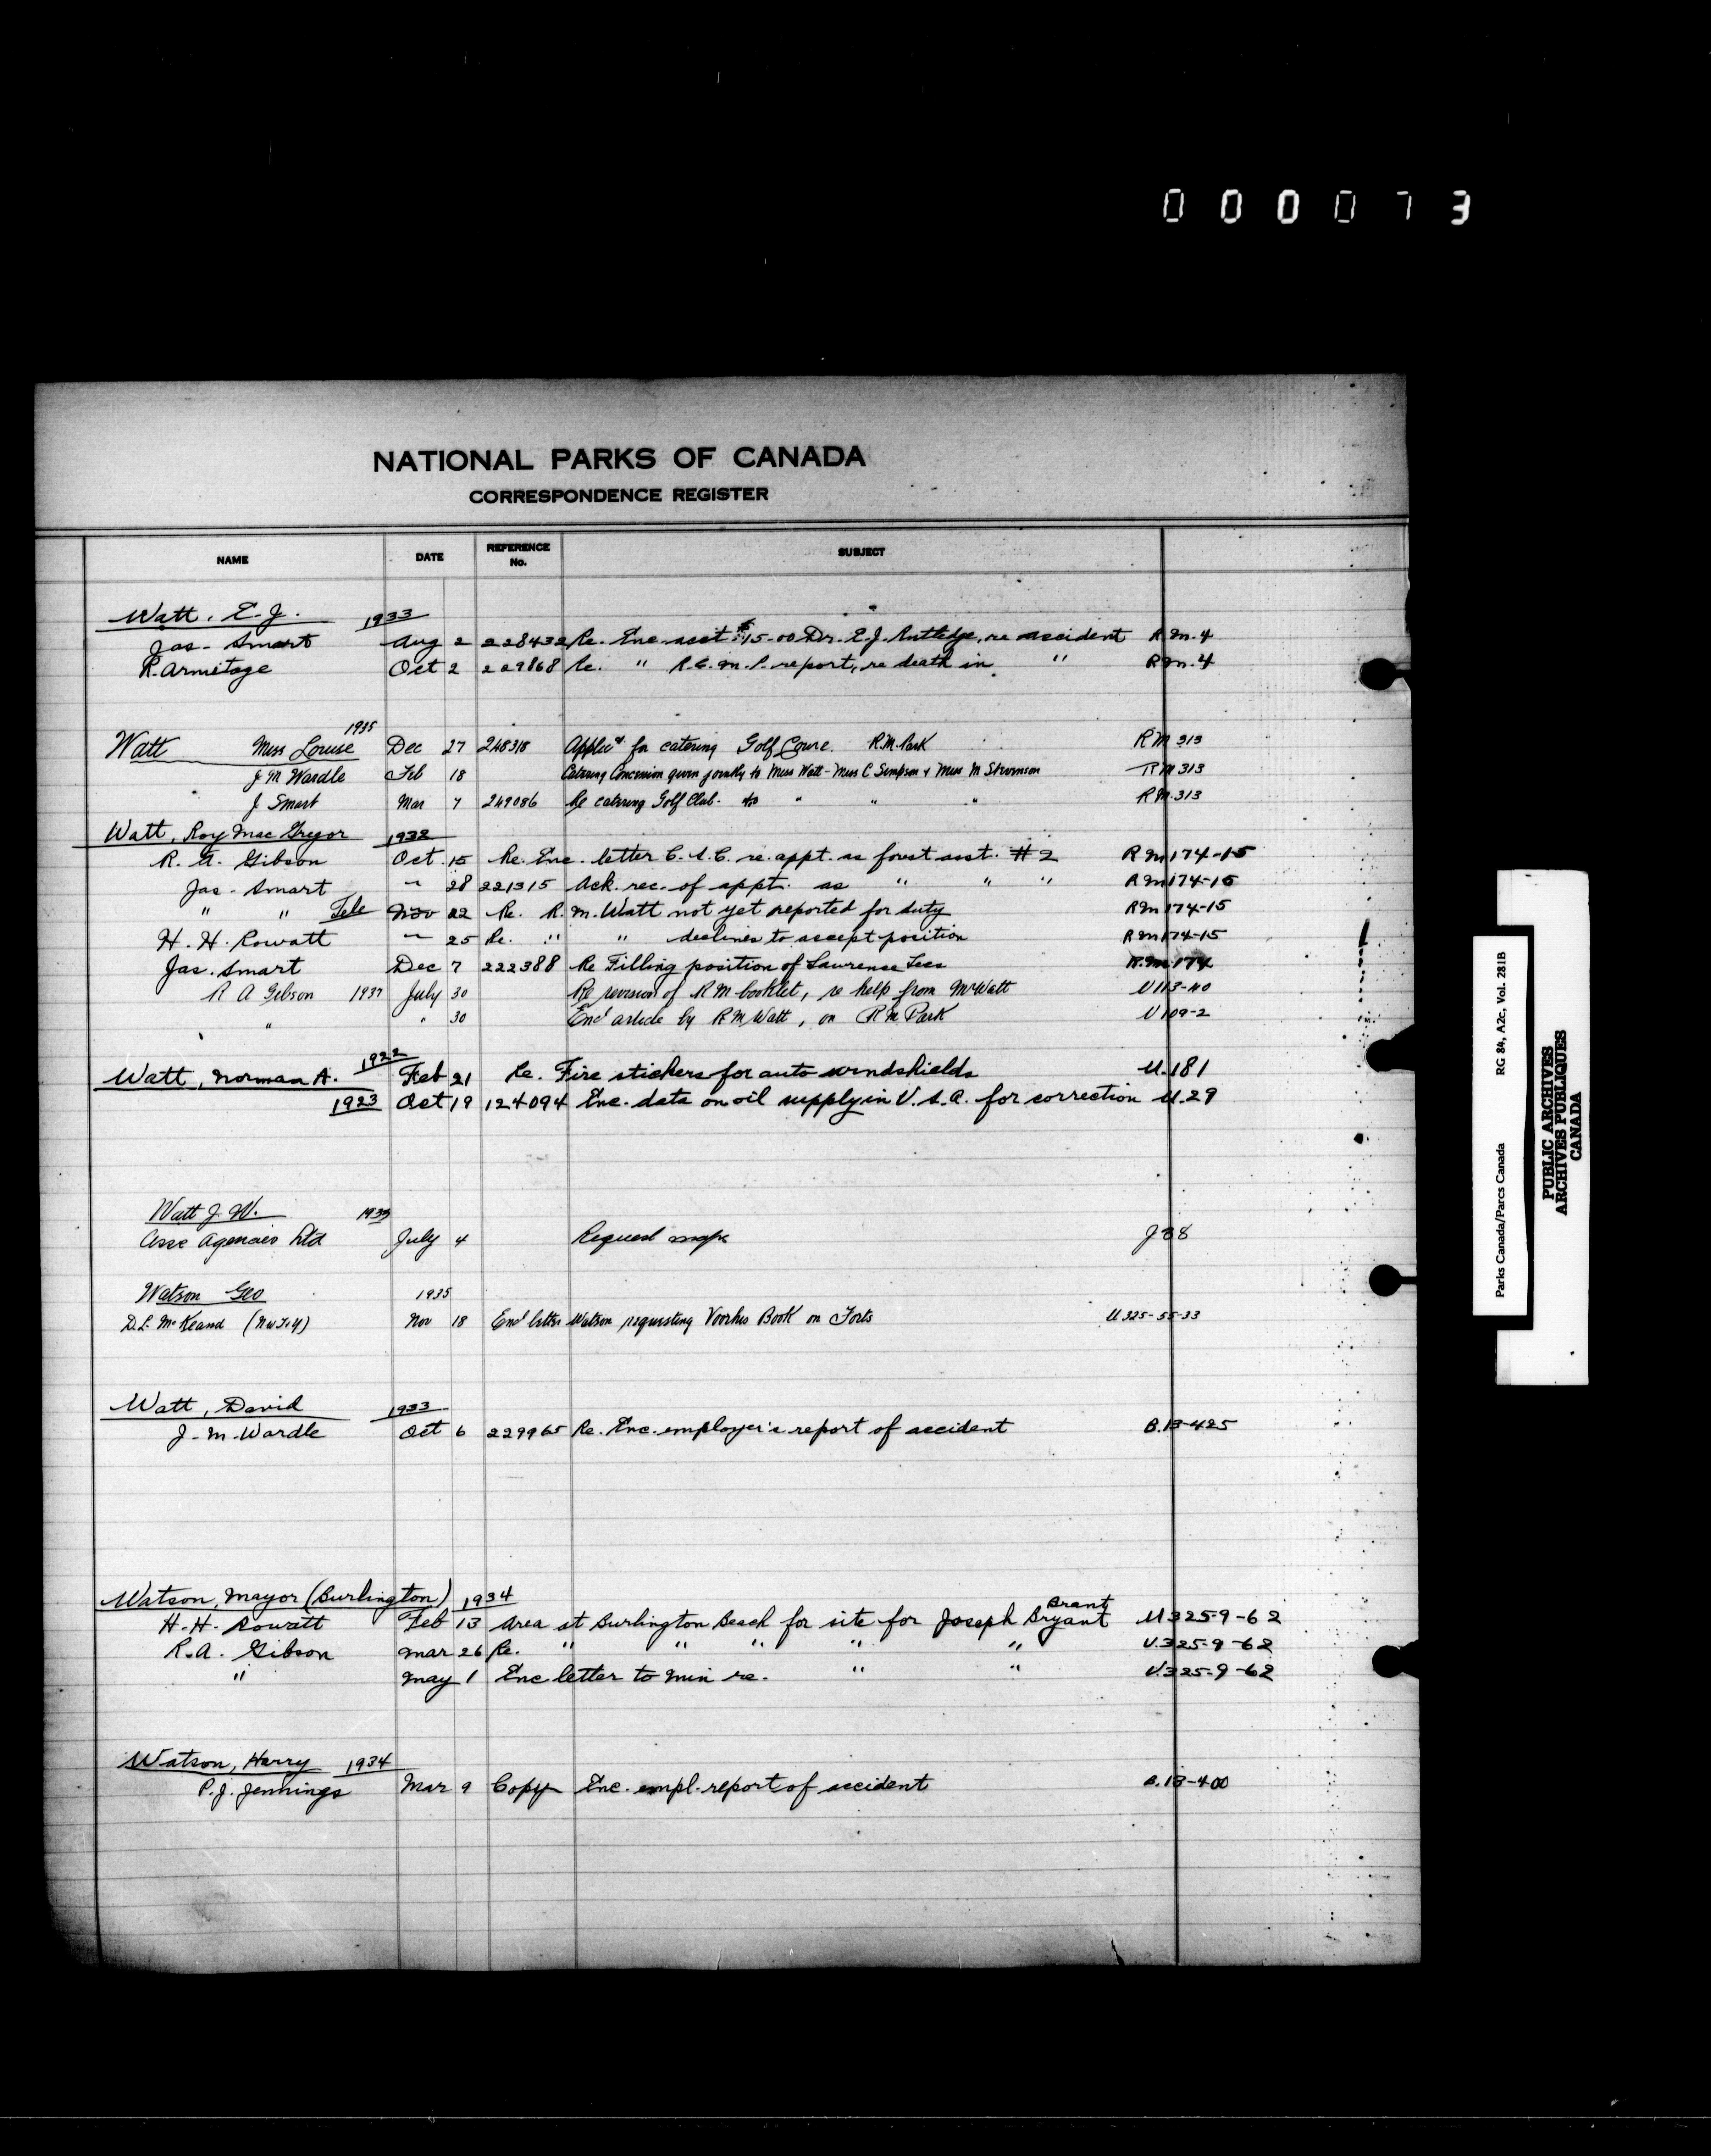 000073
NATIONAL PARKS OF CANADA
CORRESPONDENCE REGISTER
NAME DATE REFERENCE No. SUBJECT
Watt, E. J. 1933
Jas. Smart Aug 2 228432 Re. Enc. acct. $15.00 Dr. E.J. Rutledge, re accident R.M. 4
R. Armitage Oct 2 229868 Re. " R.C.M.P. report, re death in " R.M. 4
1935
Watt Miss Louise Dec 27 248318 Applicn for catering Golf Course. R.M. Park RM 313
J M Wardle Feb 18 Catering Concession given jointly to Miss Watt - Miss C Simpson & Miss M Stevenson RM 313
J Smart Mar 7 249086 Re catering Golf Club. to " " " RM.313
Watt, Roy Mac Gregor 1932
R. A. Gibson Oct. 15 Re. Enc. letter C.S.C. re. appt. as forest asst. #2 RM 174-15
Jas. Smart " 28 221315 Ack. rec. of appt. as " " " RM 174-15
" " Tele Nov 22 Re. R.M. Watt not yet reported for duty RM 174-15
H. H. Rowatt " 25 Re. " " declines to accept position RM 174-15
Jas. Smart Dec 7 222388 Re Filling position of Lawrence Lees R.M. 174
R A Gibson 1937 July 30 Re revision of RM booklet, re help from Mr Watt U113-40
" " 30 Encl article by R M Watt, on R M Park U109-2
Watt, Norman A. 1922 Feb 21 Re. Fire stickers for auto windshields U.181
1923 Oct 19 124094 Enc. data on oil supply in U.S.A. for correction U.29
Watt J. W.
Agencies Ltd July 4 Request maps J 88
Watson Geo 1935
D.L. McKeand Nov 18 Encl letter Watson requesting Voorhis Book on Forts U325-55-33
Watt, David 1933
J. M. Wardle Oct 6 229965 Re. Enc. employer's report of accident B.13-425
Watson, Mayor (Burlington) 1934
Brant
H. H. Rowatt Feb 13 Area at Burlington Beach for site for Joseph Bryant U325-9-62
R. A. Gibson Mar 26 Re. " " " " " U.325-9-62
" May 1 Enc letter to Min re. " " U.325-9-62
Watson, Harry 1934
P. J. Jennings Mar 9 Copy Enc. empl. report of accident B.13-400
Parks Canada/Parcs Canada RG 84, A2c, Vol. 281B
PUBLIC ARCHIVES
ARCHIVES PUBLIQUES
CANADA